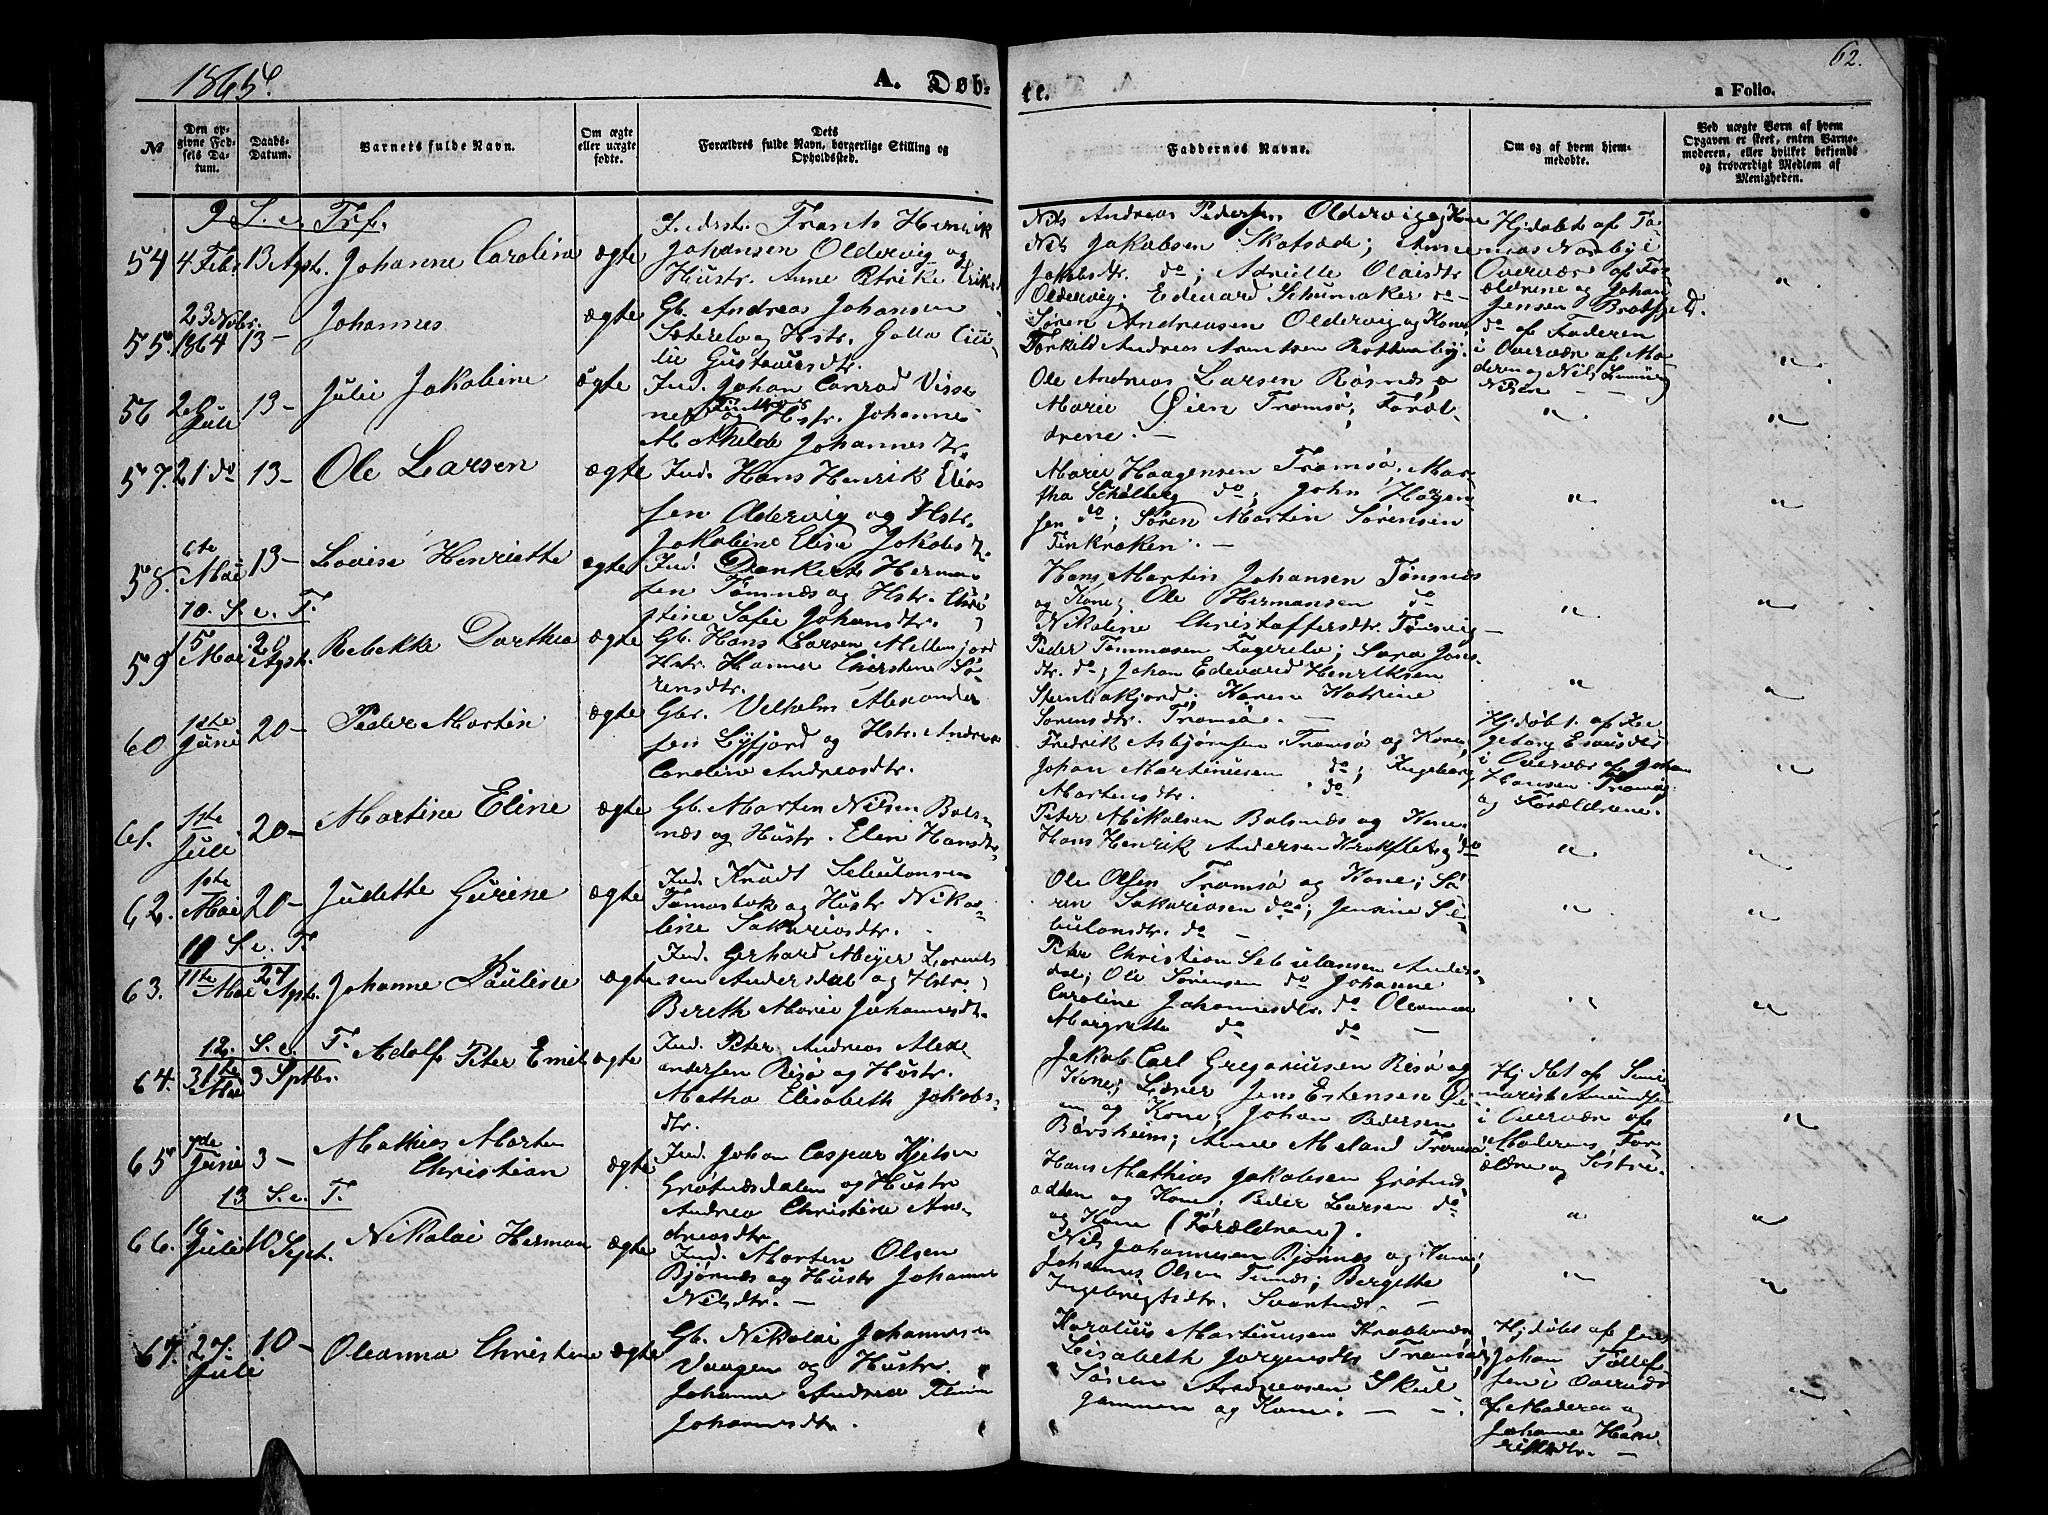 1865.
A. Døb-
te.
62.
a Folio.
№
Den op-
givne Fød-
sels Da-
tum.
Daabs-
Datum.
Barnets fulde Navn.
Om ægte
eller uægte
fødte.
Dets
Forældres fulde Navn, borgerlige Stilling og
Opholdssted.
Faddernes Navne.
Om og af hvem hjem-
medøbte.
Ved uægte Børn af hvem
Opgaven er skeet, enten Barne-
moderen, eller hvilket bekjendt
og troværdigt Medlem af
Menigheden.
9 S. e. Tref.
54
4 Febr.
13 Agst.
Johanne Caroline
ægte
Inderst. Frants Henrik
Johansen Oldervig og
Hustr. Anne Petrike
Nils Andreas Pedersen Oldervig og Kone
Nils Jakobsen Skatsæde; Anne
Jakobsdtr. do; Adrielle Olaisdtr
Oldervig; Edevard Schumaker do
Hj.døbt af To-
mas Nordby i
Overvær af For-
ældrene og Johan
Jensen
"
55
23 Nobr.
1864
13-
Johannes
ægte
Gb. Andreas Johansen
og Hstr.
Gustavusdtr.
Søren Andreasen Oldervig og Kone
Torkild Andreas Arentsen
do af Faderen
i Overvær af Mo-
deren og Nils
Nilsen
"
56
Juli
13-
Julie Jakobine
ægte
Ind. Johan Conrad
og Hstr. Johanne
Mathilde Johannesdtr.
Ole Andreas Larsen
Marie Øien Tromsø; Foræl-
drene.
"
"
57.
21 do
13-
Ole Larsen
ægte
Ind. Hans Henrik Elias
sen Oldervig og Hstr.
Jakobine Elise Jakobsdtr.
Marie Haagensen Tromsø, Mar-
tha Schølberg do; John Hagen-
sen do; Søren Martin Sørensen
Finkroken.
"
"
58.
6te
Mai
13-
Lovise Henriette
ægte
Ind. Dankert Herman-
sen Tønsnes og Hstr. Chri-
stine Sofie Johansdtr.
Hans Martin Johansen Tønsnes
og Kone; Ole Hermansen do
Nikoline Christoffersdtr. Tønsvig
"
"
10. S. e. T.
59
15
Mai
20
Agst.
Rebekke Dorthea
ægte
Gb. Hans Larsen Mellemjord
Hstr. Hanna Chirstine Sø-
rensdtr.
Peder Tommasen Fagerelv; Sara Jens-
dtr. do; Johan Edevard Henriksen
Steinbakjord; Karen Katrine
Sørensdtr. Tromsø.
"
"
60
1ste
Juni
20-
Peder Martin
ægte
Gbr. Velhelm Alexander
sen Eyfjord og Hstr. Andrea
Caroline Andreasdtr.
Fredrik Asbjørnsen Tromsø og Kone;
Johan Martinusen do; Ingeborg
Martensdtr. do
Hj.døbt. af In-
geborg Esaiasdtr
i Overvær af Johan
Hansen Tromsø
og Forældrene.
"
61.
1ste
Juli
20-
Martine Eline
ægte
Gb. Morten Nilsen Bals-
næs og Hustr. Elen Hansdtr.
Peter Mikalsen Balsnæs og Kone
Hans Henrik Andersen Krokflet og do
"
"
62.
1ste
Mai
20-
Judette Gurine
ægte
Ind. Knudt Sebulonsen
Tomasbak og Hustr Niko-
line Sakariasdtr.
Ole Olsen Tromsø og Kone; Sø-
ren Sakariasen do; Jensine Se-
bulonsdtr. do
"
"
11 S. e. T.
63.
11te
Mai
27
Agst.
Johanne Pauline
ægte
Ind. Gerhard Meyer Lorents
sen Andersdal og Hstr.
Bereth Marie Johannesdtr.
Peter Christian Sebulonsen Anders-
dal; Ole Sørensen do Johanne
Caroline Johannesdtr. do Oleanna
Margrette do do
"
"
12. S. e. T.
64.
31te
Mai
3 Sptbr.
Adolf Peter Emil
ægte
Ind. Peter Andreas Alex-
andersen Risø og Hustr.
Matha Elisabeth Jakobs-
dtr.
Jakob Carl Gregoriusen Risø og
Kone; Lærer Jens Estensen Øi-
en og Kone; Johan Pedersen
Barsheim; Anne Meland Tromsø
Hj.døbt af Semi-
narist Amundsen
i Overvær af
Moderens For-
ældre og Søstre.
"
65
7de
Juni
3-
Mathias Morten
Christian
ægte
Ind. Johan Caspar Kjelsen
Grøtnæsdalen og Hustr
Andrea Christine An-
dreasdtr
Hans Mathias Jakobsen Grøtnæs
odden og Kone; Peder Larsen do
og Kone (Forældrene).
"
"
13 S. e. T.
66.
16
Juli
10 Sept.
Nikolai Herman
ægte
Ind. Morten Olsen
Bjørnes og Hustr Johanne
Nilsdtr.
Nils Johannesen Bjørnes og Kone;
Johannes Olsen Tunes; Bergette
Ingebrigtsdtr. Svartnes.
"
"
67.
27.
Juli
10-
Oleanna Christine
ægte
Gb. Nikolai Johannesen
Vaagen og Hustr.
Johanne Andrea
Johannesdtr.
Karolius Martinusen Krabbenæs
Lisabeth Jørgensdtr Tromsø
Søren Andreasen Skul
gammen og Kone.
Hj.døbt af Jens
Johan Tollef
sen i Overvær
af Moderen og
Johanne Hen-
riksdtr.
"